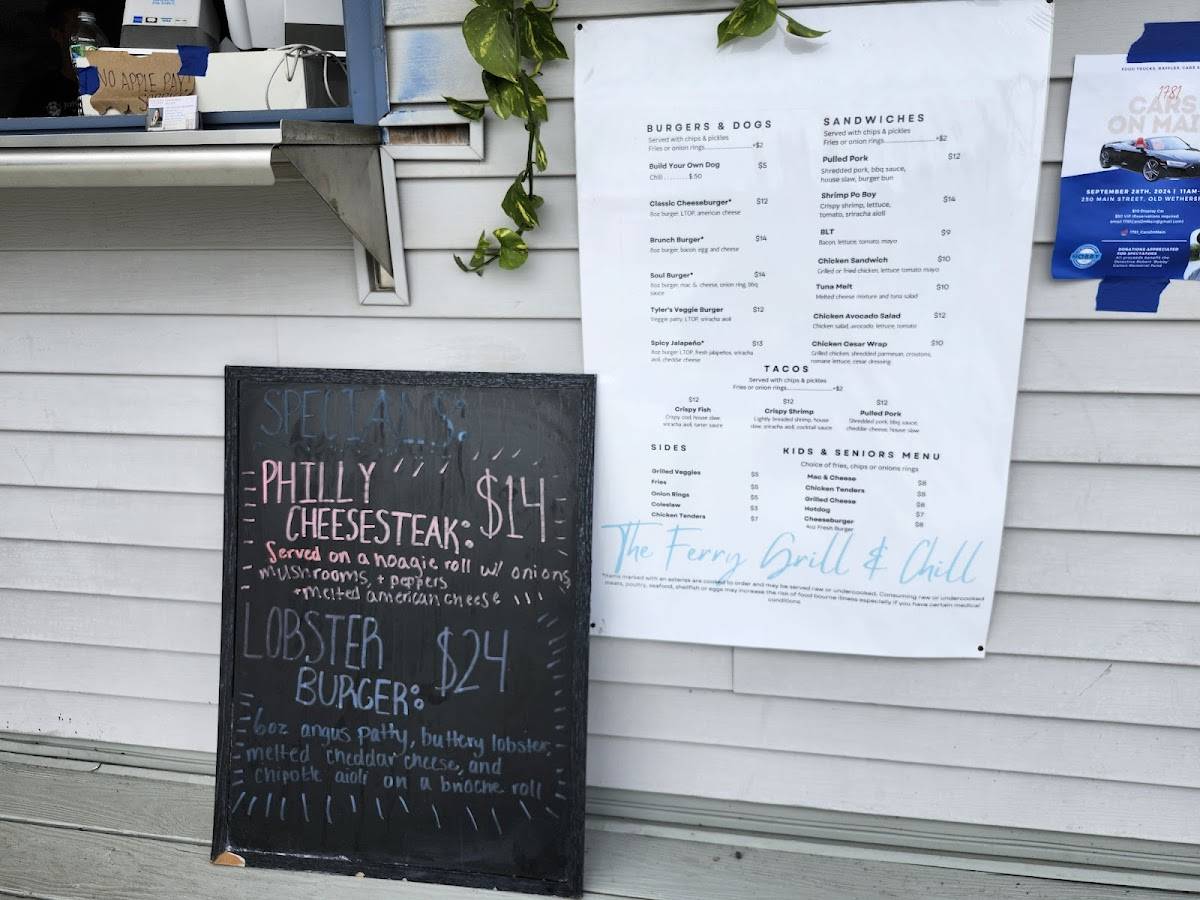 NO APPLE PAY!
SPECIALS:
PHILLY
CHEESESTEAK: $14
Served on a hoagie roll w/ onions,
mushrooms, + peppers
+melted american cheese
LOBSTER
BURGER: $24
6oz angus patty, buttery lobster,
melted cheddar cheese, and
chipotle aioli on a brioche roll
BURGERS & DOGS
Served with chips & pickles
Fries or onion rings +$2
Build Your Own Dog $5
Chili ........ $.50
Classic Cheeseburger* $12
8oz burger, LTOP, american cheese
Brunch Burger* $14
8oz burger, bacon, egg and cheese
Soul Burger* $14
8oz burger, mac & cheese, onion ring, bbq
sauce
Tyler's Veggie Burger $12
Veggie patty, LTOP, sriracha aioli
Spicy Jalapeño* $13
8oz burger LTOP, fresh jalapeños, sriracha
aioli, cheddar cheese
SANDWICHES
Served with chips & pickles
Fries or onion rings +$2
Pulled Pork $12
Shredded pork, bbq sauce,
house slaw, burger bun
Shrimp Po Boy $14
Crispy shrimp, lettuce,
tomato, sriracha aioli
BLT $9
Bacon, lettuce, tomato, mayo
Chicken Sandwich $10
Grilled or fried chicken, lettuce tomato mayo
Tuna Melt $10
Melted cheese mixture and tuna salad
Chicken Avocado Salad $12
Chicken salad, avocado, lettuce, tomato
Chicken Cesar Wrap $10
Grilled chicken, shredded parmesan, croutons,
romaine lettuce, cesar dressing
TACOS
Served with chips & pickles
Fries or onion rings +$2
$12 $12 $12
Crispy Fish Crispy Shrimp Pulled Pork
Crispy cod, house slaw,
sriracha aioli, tarter sauce
Lightly breaded shrimp, house
slaw, sriracha aioli, cocktail sauce
Shredded pork, bbq sauce,
cheddar cheese, house slaw
SIDES
Grilled Veggies $5
Fries $5
Onion Rings $5
Coleslaw $3
Chicken Tenders $7
KIDS & SENIORS MENU
Choice of fries, chips or onions rings
Mac & Cheese $8
Chicken Tenders $8
Grilled Cheese $8
Hotdog $7
Cheeseburger $8
4oz Fresh Burger
The Ferry Grill & Chill
*Items marked with an asterisk are cooked to order and may be served raw or undercooked. Consuming raw or undercooked
meats, poultry, seafood, shellfish or eggs may increase the risk of food bourne illness especially if you have certain medical
conditions
FOOD TRUCKS, RAFFLES, CARS &
1781
CARS
ON MAI
SEPTEMBER 28TH, 2024 | 11AM-
250 MAIN STREET, OLD WETHERS
$10 Display Car
DONATIONS APPRECIATED
FOR SPECTATORS